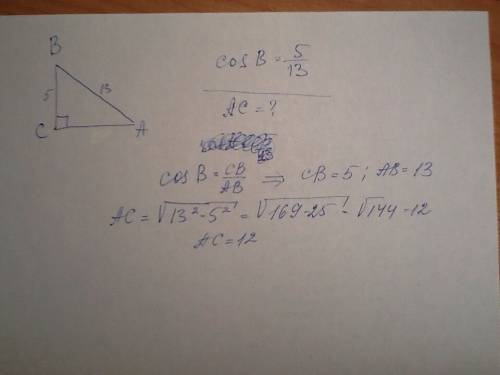 B
5
13
C
A
cos B = 5/13
AC = ?
cos B = CB/AB ⇒ CB = 5 ; AB = 13
AC = √13²-5² = √169-25 - √144 - 12
AC = 12